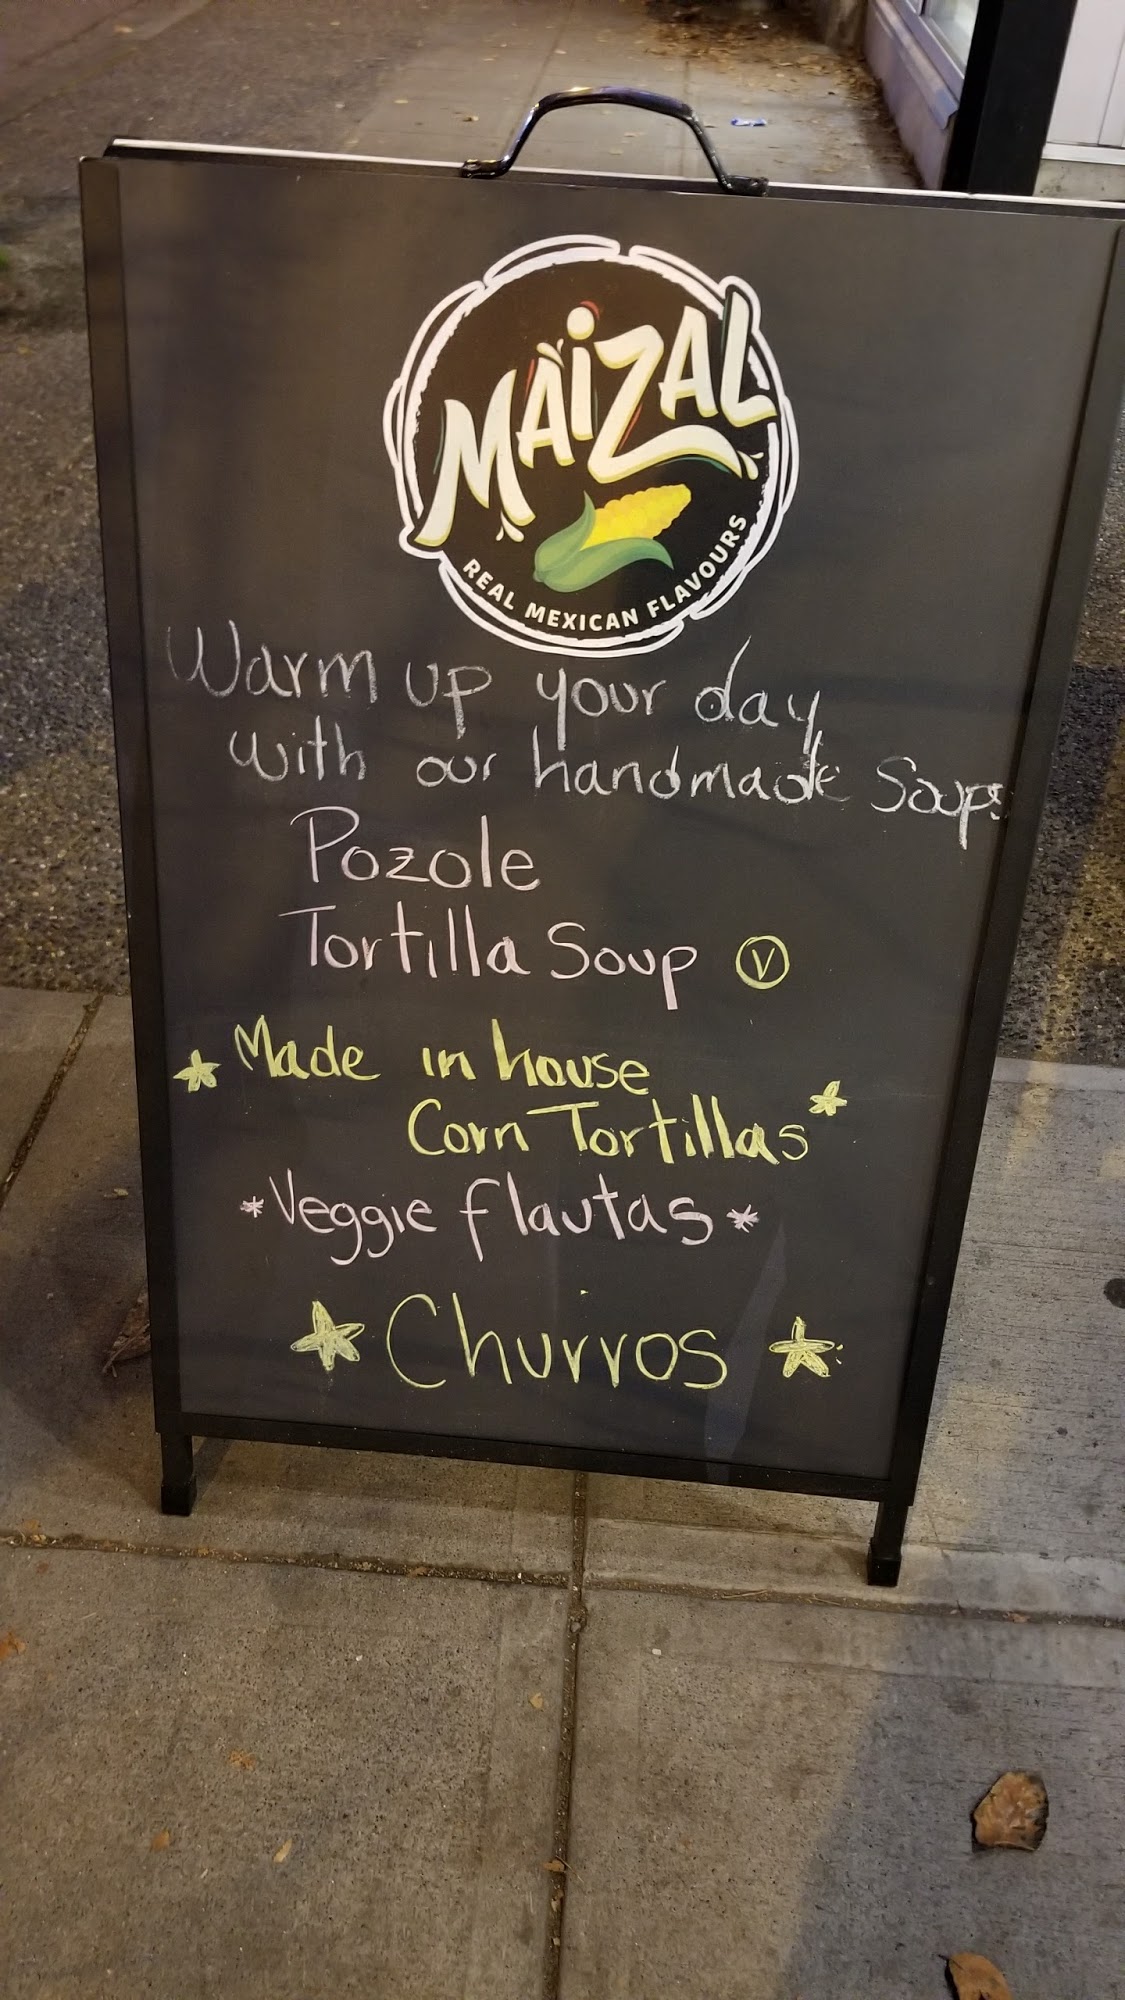 MAiZAL
REAL MEXICAN FLAVOURS
Warm up your day
with our handmade Soups
Pozole
Tortilla Soup V
Made in house
Corn Tortillas
*Veggie flautas*
Churros